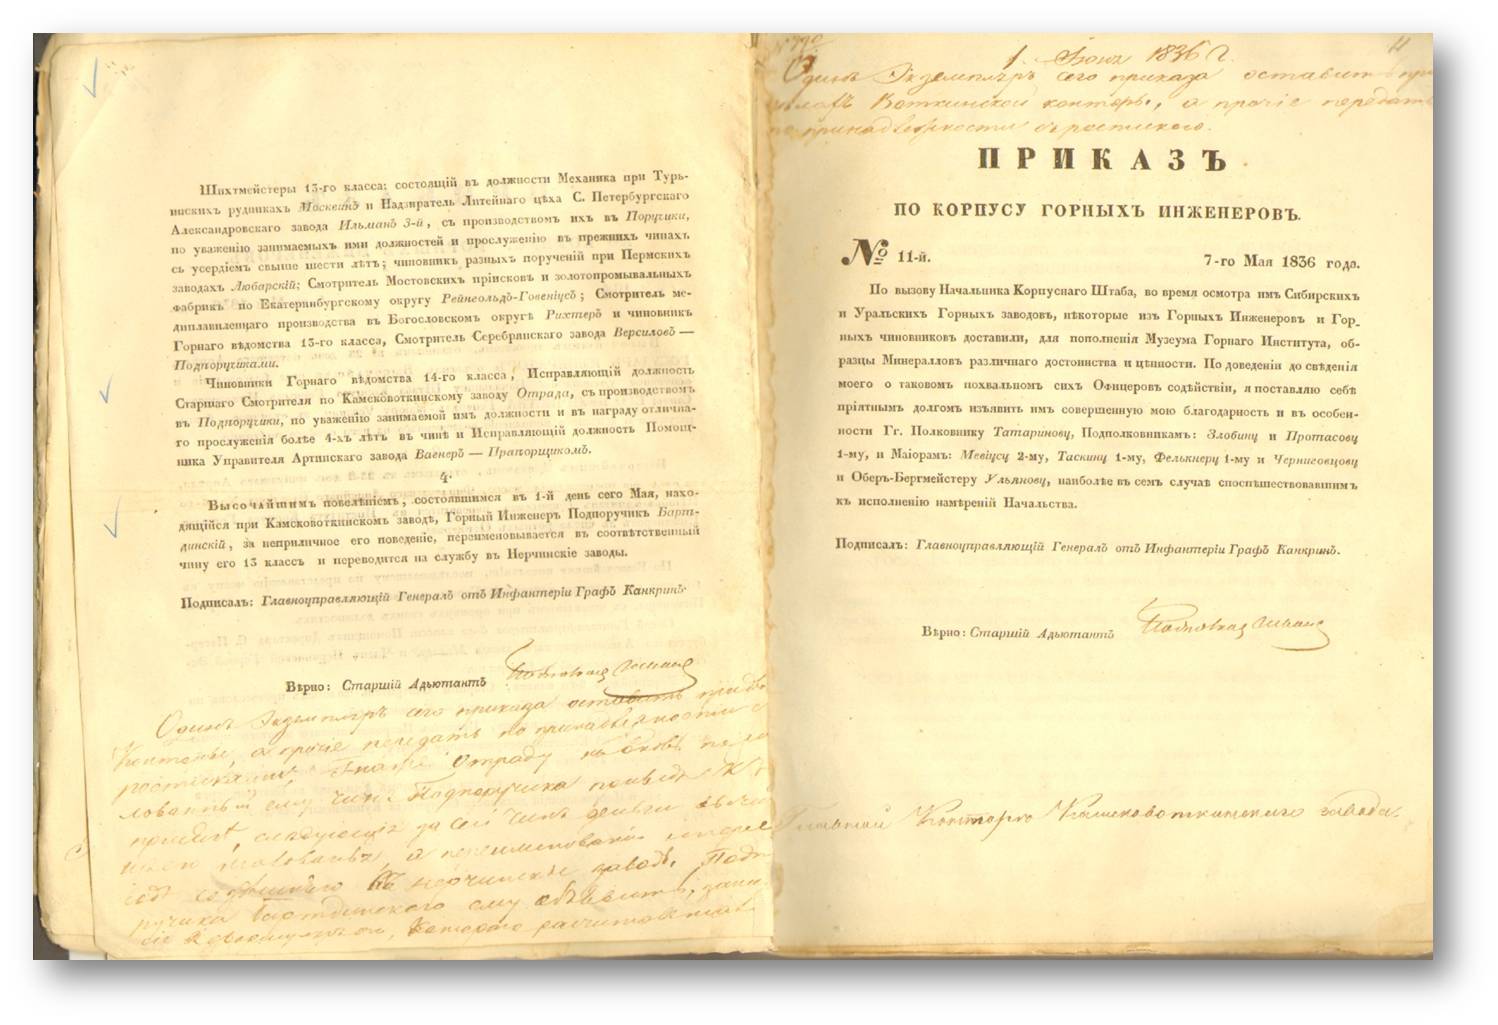 Шихтмейстеры 13-го класса: состоящій въ должности Механика при Турь-
инскихъ рудникахъ Москвинъ и Надзиратель Литейнаго цѣха С. Петербургскаго
Александровскаго завода Ильманъ 3-й, съ производствомъ ихъ въ Поручики,
по уваженію занимаемыхъ ими должностей и прослуженію въ прежнихъ чинахъ
съ усердіемъ свыше шести лѣтъ; чиновникъ разныхъ порученій при Пермскихъ
заводахъ Любарскій; Смотритель Мостовскихъ пріисковъ и золотопромывальныхъ
фабрикъ по Екатеринбургскому округу Рейнгольдъ-Говеніусъ; Смотритель ме-
диплавиленнаго производства въ Богословскомъ округѣ Рихтеръ и чиновникъ
Горнаго вѣдомства 13-го класса, Смотритель Серебрянскаго завода Версиловъ —
Подпоручиками.
Чиновники Горнаго вѣдомства 14-го класса, Исправляющій должность
Старшаго Смотрителя по Камсковоткинскому заводу Отрада, съ производствомъ
въ Подпоручики, по уваженію занимаемой имъ должности и въ награду отлична-
го прослуженія болѣе 4-хъ лѣтъ въ чинѣ и Исправляющій должность Помощ-
ника Управителя Артинскаго завода Вагнеръ — Прапорщикомъ.
4.
Высочайшимъ повелѣніемъ, состоявшимся въ 1-й день сего Мая, нахо-
дящійся при Камсковоткинскомъ заводѣ, Горный Инженеръ Подпоручикъ Барт-
динскій, за неприличное его поведеніе, переименовывается въ соотвѣтственный
чину его 13 классъ и переводится на службу въ Нерчинскіе заводы.
Подписалъ: Главноуправляющій Генералъ отъ Инфантеріи Графъ Канкринъ.
Вѣрно: Старшій Адъютантъ
Одинъ Экземпляръ сего приказа оставить
Конторы, а прочіе передать по принадлежности
Отраду
ему чинъ Подпоручика
следующія за сей чинъ деньги
а переименованіи
въ Нерчинскіе заводы, Подпо-
ручика Бартдинскаго ему объявить,
1. Іюня 1836 г.
Одинъ Экземпляръ сего приказа оставить при
Воткинской конторы, а прочіе передать
по принадлежности съ роспискою.
11
ПРИКАЗЪ
ПО КОРПУСУ ГОРНЫХЪ ИНЖЕНЕРОВЪ.
№ 11-й. 7-го Мая 1836 года.
По вызову Начальника Корпуснаго Штаба, во время осмотра имъ Сибирскихъ
и Уральскихъ Горныхъ заводовъ, нѣкоторые изъ Горныхъ Инженеровъ и Гор-
ныхъ чиновниковъ доставили, для пополненія Музеума Горнаго Института, об-
разцы Минералловъ различнаго достоинства и цѣнности. По доведеніи до свѣденія
моего о таковомъ похвальномъ сихъ Офицеровъ содѣйствіи, я поставляю себѣ
пріятнымъ долгомъ изъявить имъ совершенную мою благодарность и въ особен-
ности Гг. Полковнику Татаринову, Подполковникамъ: Злобину и Протасову
1-му, и Маіорамъ: Мевіусу 2-му, Таскину 1-му, Фелькнеру 1-му и Чернисовцову
и Оберъ-Бергмейстеру Ульянову, наиболѣе въ семъ случаѣ споспѣшествовавшимъ
къ исполненію намѣреній Начальства.
Подписалъ: Главноуправляющій Генералъ отъ Инфантеріи Графъ Канкринъ.
Вѣрно: Старшій Адъютантъ
Главной Конторѣ Камсковоткинскаго завода.